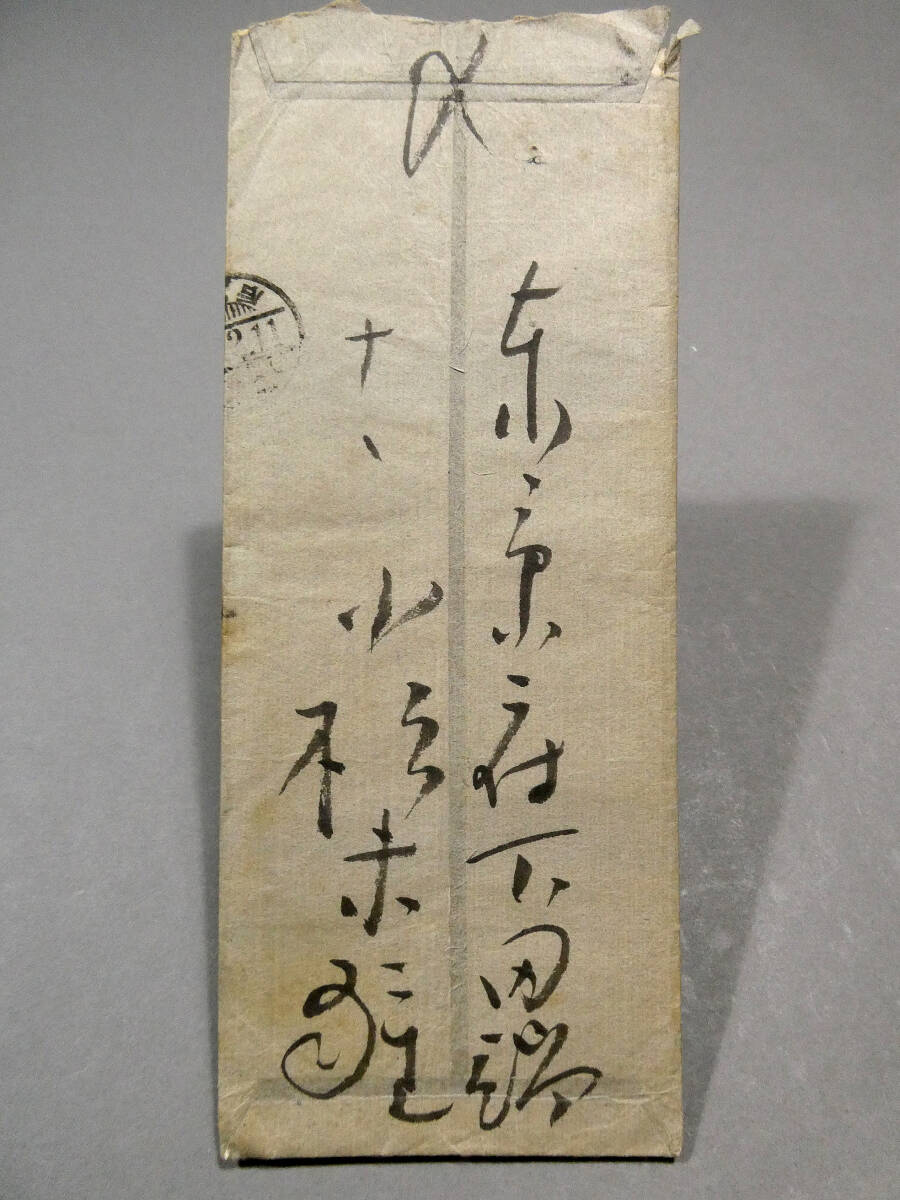 〆
東京府下田端
十、
小杉未醒
2.11